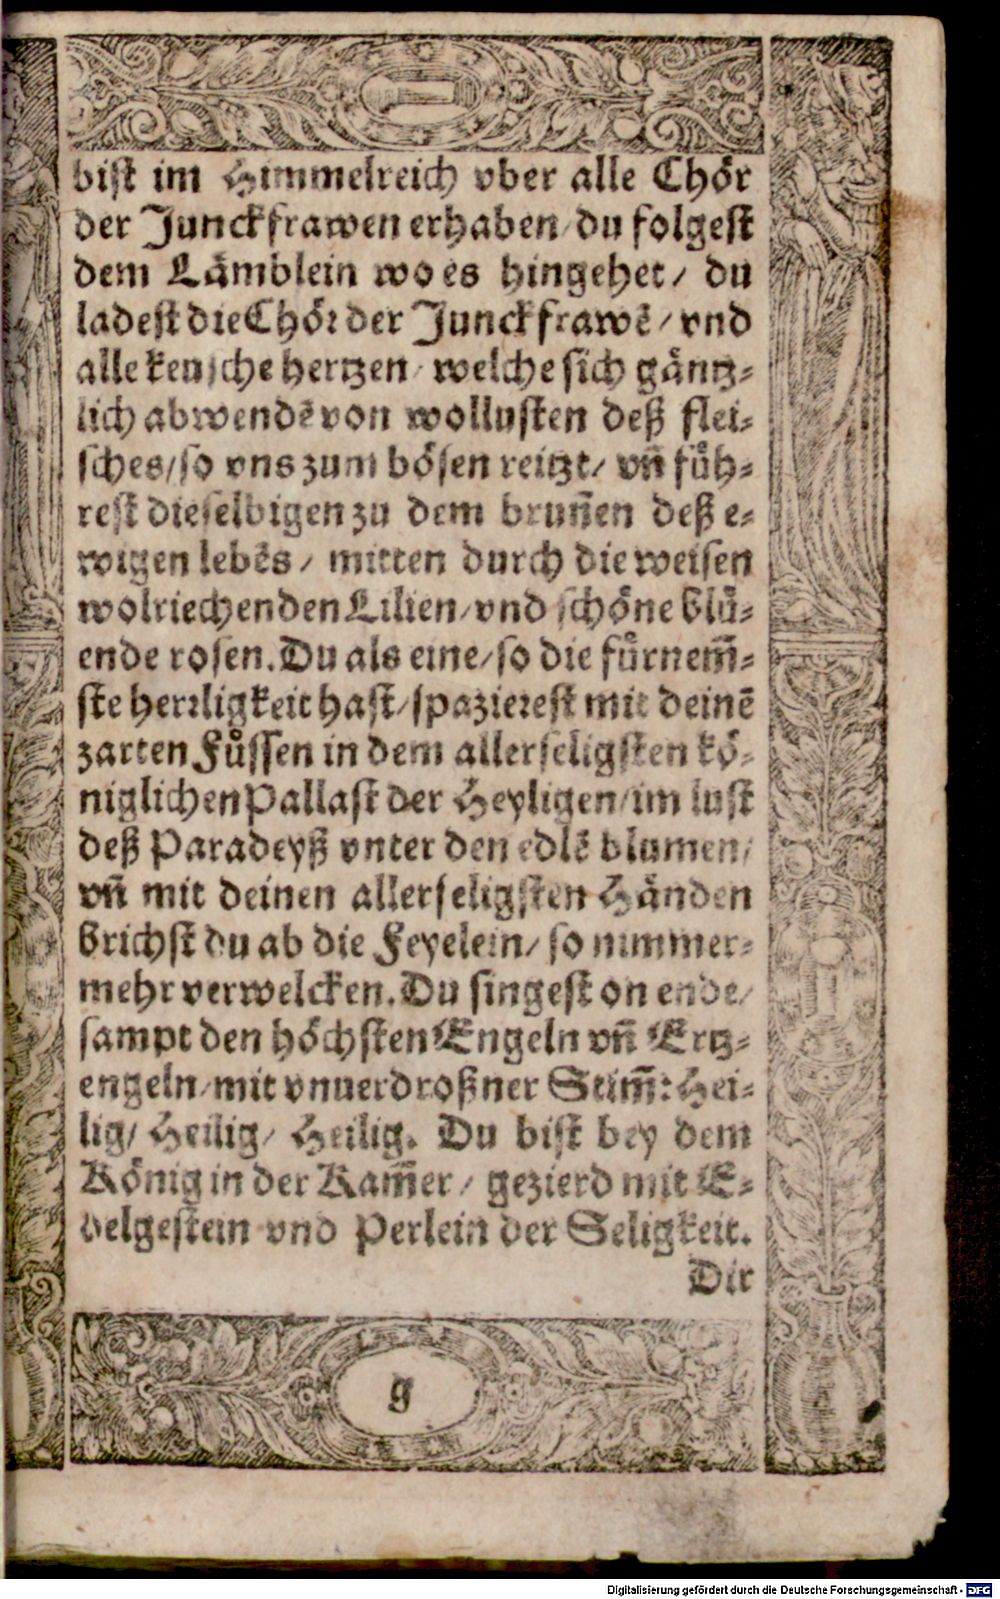 bist im Himmelreich vber alle Chör
der Junckfrawen erhaben/du folgest
dem Lämblein wo es hingehet/ du
ladest die Chör der Junckfrawē/vnd
alle keusche hertzen/welche sich gäntz-
lich abwendē von wollusten deß flei-
sches/so vns zum bösen reitzt/ vn̄ fuͤh-
rest dieselbigen zu dem brun̄en deß e-
wigen lebēs/ mitten durch die weisen
wolriechenden Lilien/vnd schöne bluͤ-
ende rosen. Du als eine/so die fuͤrnem̄-
ste herrligkeit hast/spazierest mit deinē
zarten Fuͤssen in dem allerseligsten kö-
niglichen Pallast der Heyligen/im lust
deß Paradeyß vnter den edlē blumen/
vn̄ mit deinen allerseligsten Händen
brichst du ab die Feyelein/so nimmer-
mehr verwelcken. Du singest on ende/
sampt den höchsten Engeln vn̄ Ertz-
engeln/mit vnuerdroßner Stim̄: Hei-
lig/ Heilig/ Heilig. Du bist bey dem
König in der Kam̄er/ gezierd mit E-
delgestein vnd Perlein der Seligkeit.
Dir
g
Digitalisierung gefördert durch die Deutsche Forschungsgemeinschaft - DFG